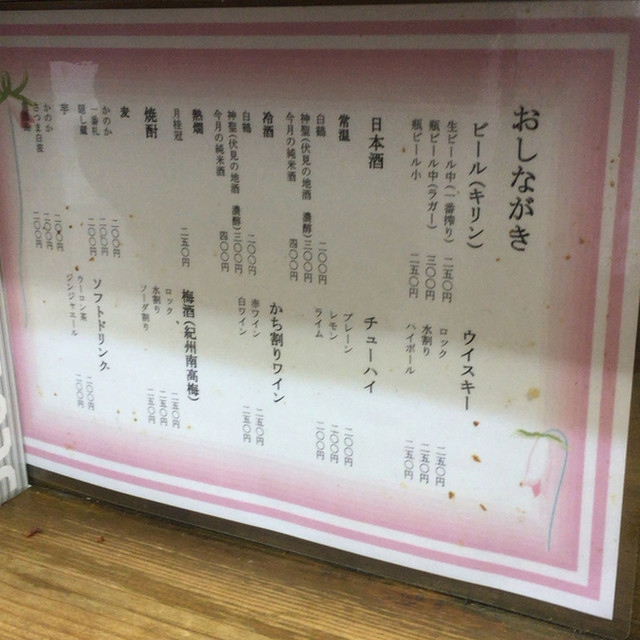 おしながき
ビール(キリン)
生ビール中(一番搾り) 二五〇円
瓶ビール中(ラガー) 三〇〇円
瓶ビール小 二五〇円
日本酒
常温
白鶴 二〇〇円
神聖(伏見の地酒 濃醇) 三〇〇円
今月の純米酒 四〇〇円
冷酒
白鶴 二〇〇円
神聖(伏見の地酒 濃醇) 三〇〇円
今月の純米酒 四〇〇円
熱燗
月桂冠 二五〇円
焼酎
麦
かのか 二〇〇円
一番札 二〇〇円
隠し蔵 二〇〇円
芋
かのか 二〇〇円
さつま白波 二〇〇円
二〇〇円
ウイスキー
ロック 二五〇円
水割り 二五〇円
ハイボール 二五〇円
チューハイ
プレーン 二〇〇円
レモン 二〇〇円
ライム 二〇〇円
かち割りワイン
赤ワイン 二五〇円
白ワイン 二五〇円
梅酒(紀州南高梅)
ロック 二五〇円
水割り 二五〇円
ソーダ割り 二五〇円
ソフトドリンク
ウーロン茶 二〇〇円
ジンジャエール 二〇〇円